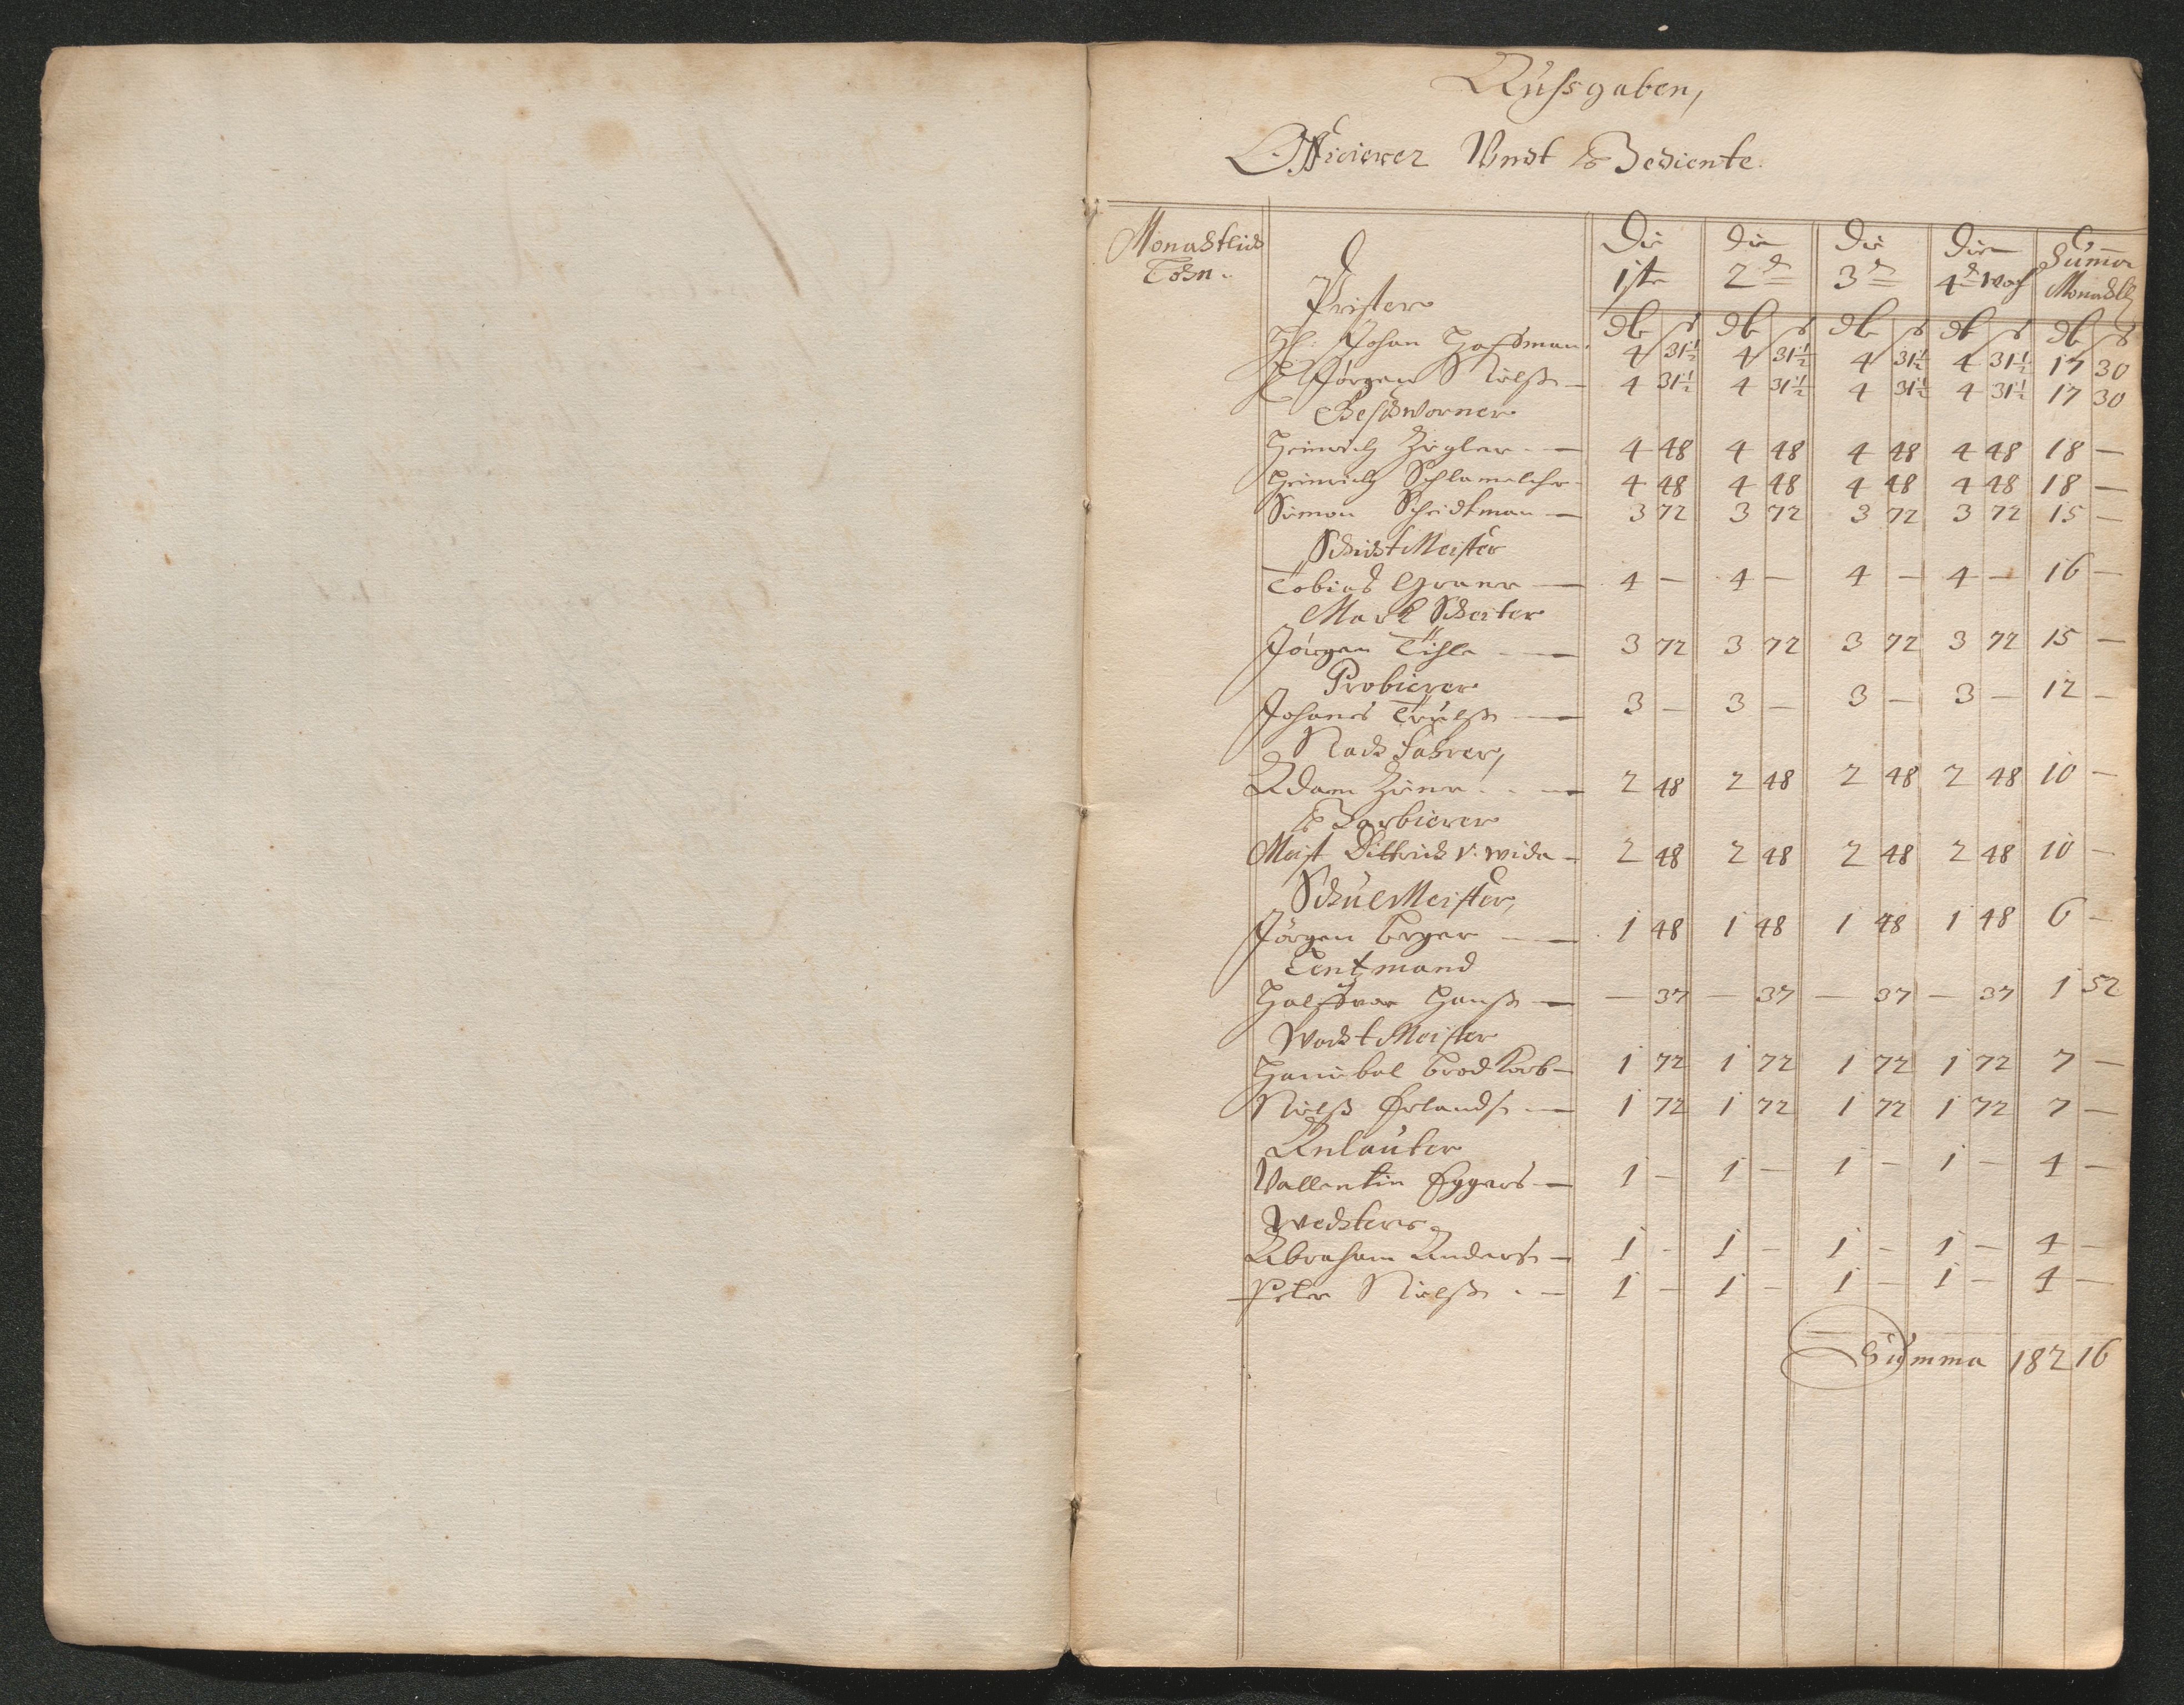 Aussgaben,
Officierer Undt Bediente.
Monahtlich Lohn. Die 1ste Die 2d Die 3d Die 4d Woch Summa Monahtl
Prister
H: Johan Hoffman 4 31½ 4 31½ 4 31½ 4 31½ 17 30
H Jörgen Nielß 4 31½ 4 31½ 4 31½ 4 31½ 17 30
Geschworner
Heinrich Zigler 4 48 4 48 4 48 4 48 18 —
Heinrich Schlamelcher 4 48 4 48 4 48 4 48 18 —
Simon Scheidtman 3 72 3 72 3 72 3 72 15 —
Schicht Meister
Tobias Graner 4 — 4 — 4 — 4 — 16 —
Mark Scheiter
Jörgen 3 72 3 72 3 72 3 72 15 —
Probierer
Johanes Trulß 3 — 3 — 3 — 3 — 12 —
Nach fahrer,
Adam 2 48 2 48 2 48 2 48 10 —
Barbierer
Meist Dittrich v. wida 2 48 2 48 2 48 2 48 10 —
Schul Meister,
Jörgen Berger 1 48 1 48 1 48 1 48 6 —
Lentzmand
Halffvor Hanß — 37 — 37 — 37 — 37 1 52
Wacht Meister
Hanibal Brodkorb 1 72 1 72 1 72 1 72 7 —
Nielß Erlandß 1 72 1 72 1 72 1 72 7 —
Anlauter
Vallentin Eggers 1 — 1 — 1 — 1 — 4 —
Wechters
Abraham Anderß 1 — 1 — 1 — 1 — 4 —
Peter Nielß 1 — 1 — 1 — 1 — 4 —
Summa 182 16